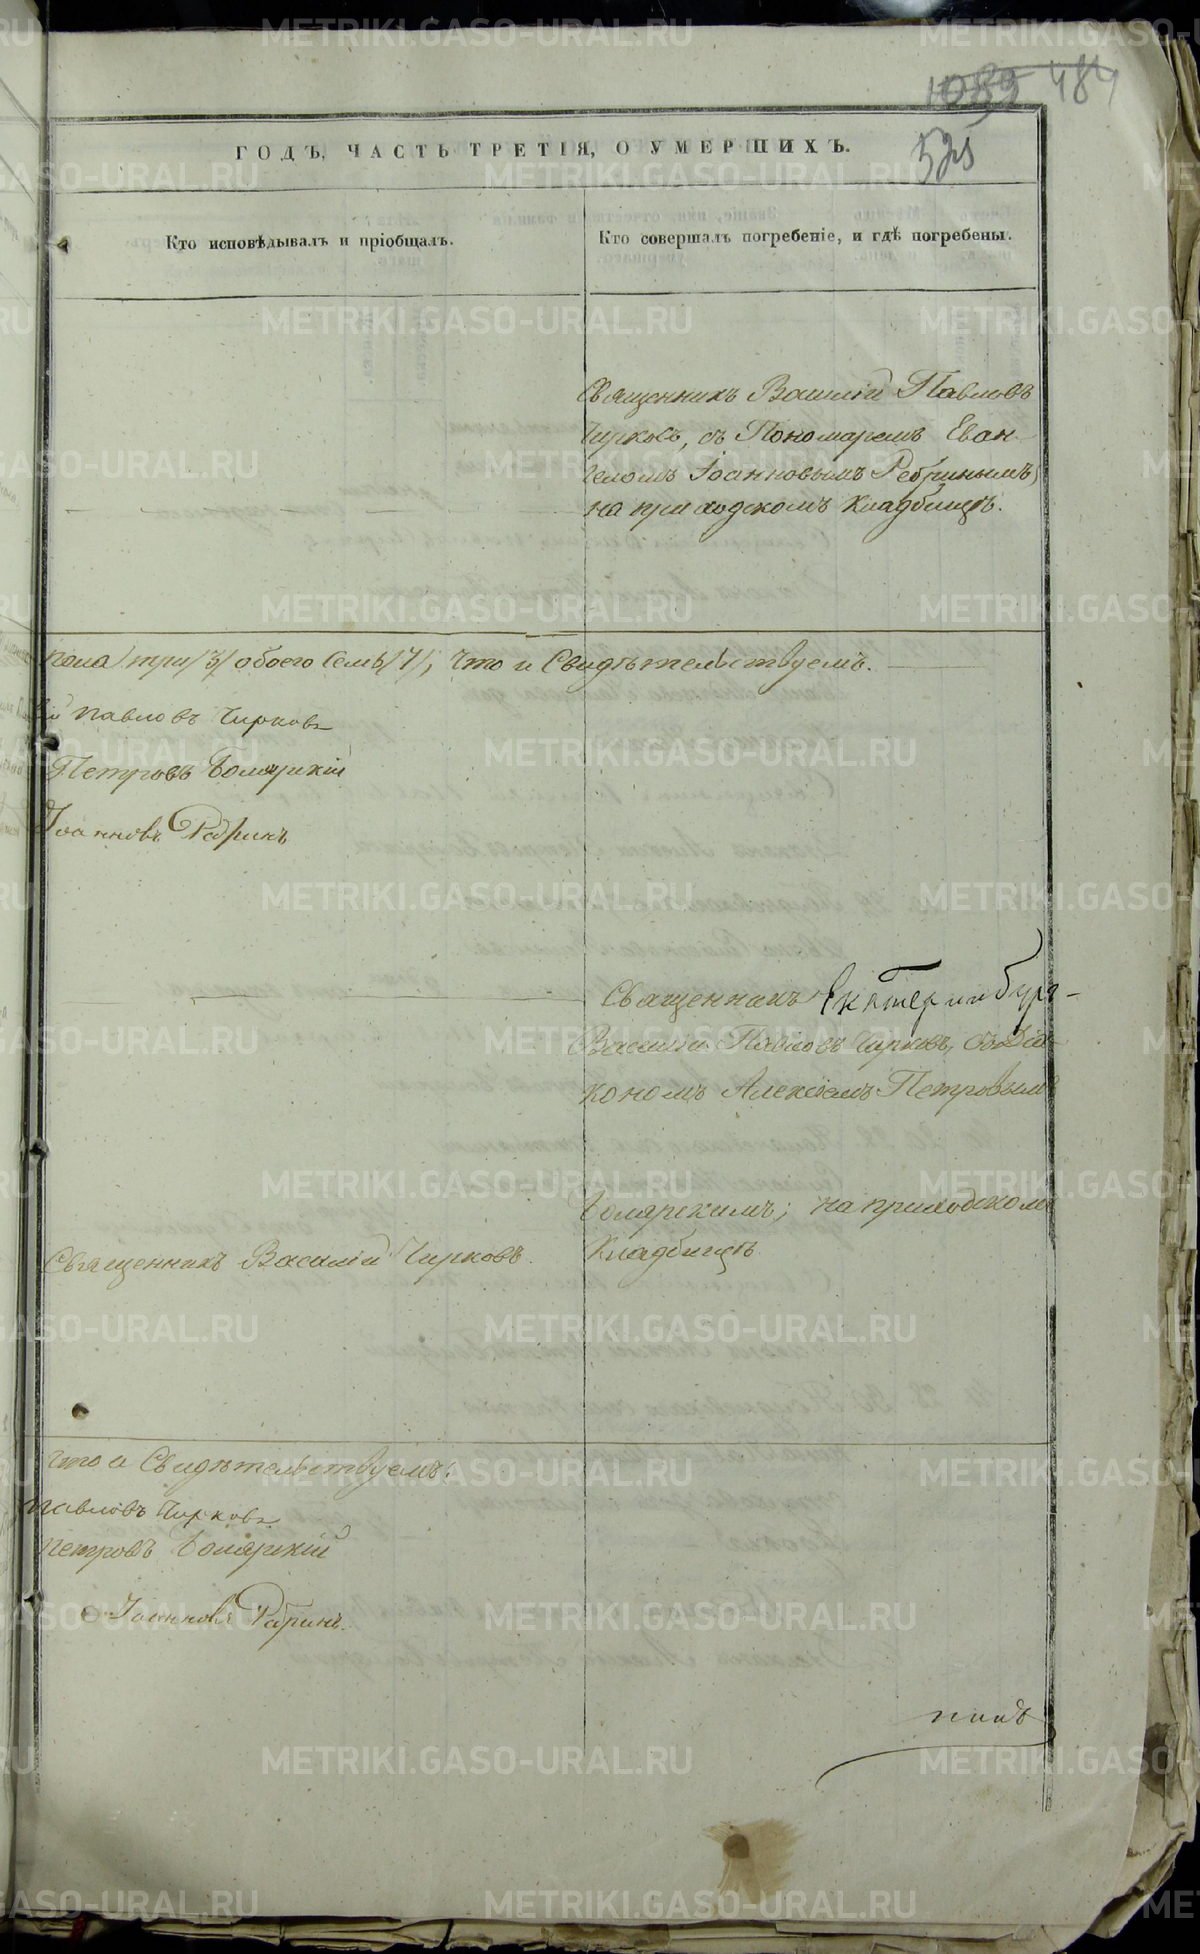 1089 484
525
ГОДЪ, ЧАСТЬ ТРЕТІЯ, О УМЕРШИХЪ.
Кто исповѣдывалъ и пріобщалъ.
Кто совершалъ погребеніе, и гдѣ погребены.
Священникъ Василій Павловъ
Чирковъ, съ Пономаремъ Еван-
геломъ Іоанновымъ Ребринымъ,
на приходскомъ кладбищѣ.
пола) три /3/ обоего семь /7/, что и свидѣтельствуемъ.
ій Павловъ Чирковъ
Петровъ Боляркій
Іоанновъ Рябринъ
Священникъ Екатеринбург-
Василій Павловъ Чирковъ, съ Діа-
кономъ Алексіемъ Петровымъ
Боляркимъ; на приходскомъ
кладбищѣ
Священникъ Василій Чирковъ.
что и Свидѣтельствуемъ:
Павловъ Чирковъ
Петровъ Боляркій
Іоанновъ
METRIKI.GASO-URAL.RU